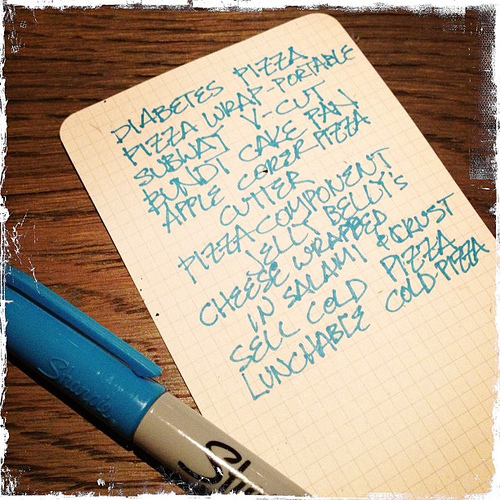 DIABETES PIZZA
PIZZA WRAP-PORTABLE
SUBWAY V-CUT
BUNDT CAKE PAN
APPLE CORER PIZZA
CUTTER
PIZZA COMPONENT
JELLY BELLY'S
CHEESE WRAPPED
IN SALAMI & CRUST
SELL COLD PIZZA
LUNCHABLE COLD PIZZA
Sharpie
Sha